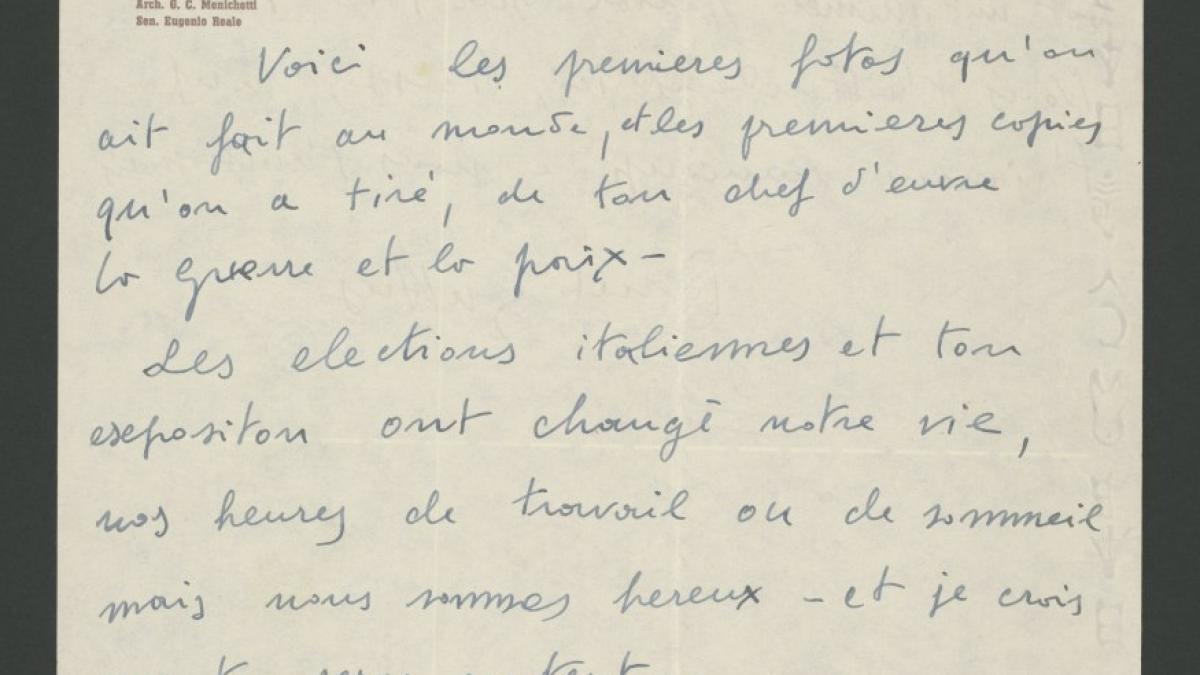 Arch. G. C. Menichetti
Sen. Eugenio Reale
Voici les premieres fotos qu'on
ait fait au monde, et les premieres copies
qu'on a tiré, de ton chef d'euvre
la guerre et la paix -
Les elections italiennes et ton
exepositon ont changé notre vie,
nos heures de travail ou de sommeil
mais nous sommes hereux - et je crois